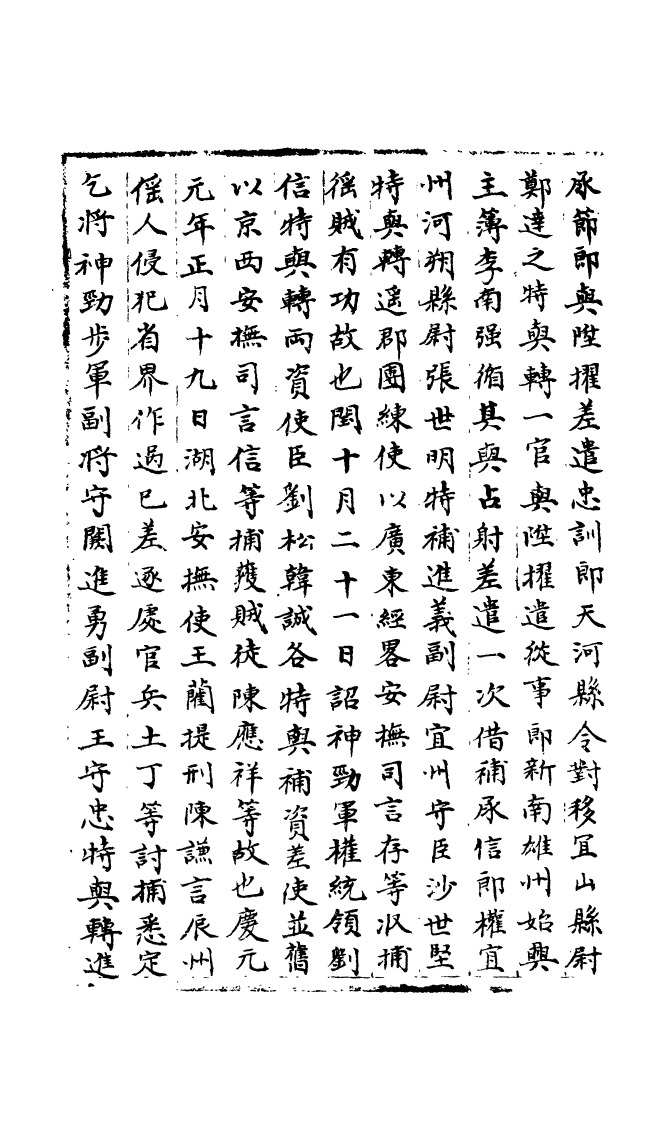 承節郎與陞擢差遣忠訓郎天河縣令對移宜山縣尉
鄭逹之特與轉一官與陞擢遣從事郎新南雄州始興
主簿李南强循其與占射差遣一次借補承信郎權宜
州河朔縣尉張世明特補進義副尉宜州守臣沙世堅
特與轉遥郡團練使以廣東經畧安撫司言存等収捕
徭賊有功故也閏十月二十一日詔神勁軍權統領劉
信特與轉兩資使臣劉松韓誠各特與補資差使並舊
以京西安撫司言信等捕獲賊徒陳應祥等故也慶元
元年正月十九日湖北安撫使王藺提刑陳謙言辰州
傜人侵犯省界作過已差逐處官兵土丁等討捕悉定
乞將神勁步軍副將守闕進勇副尉王守忠特與轉進